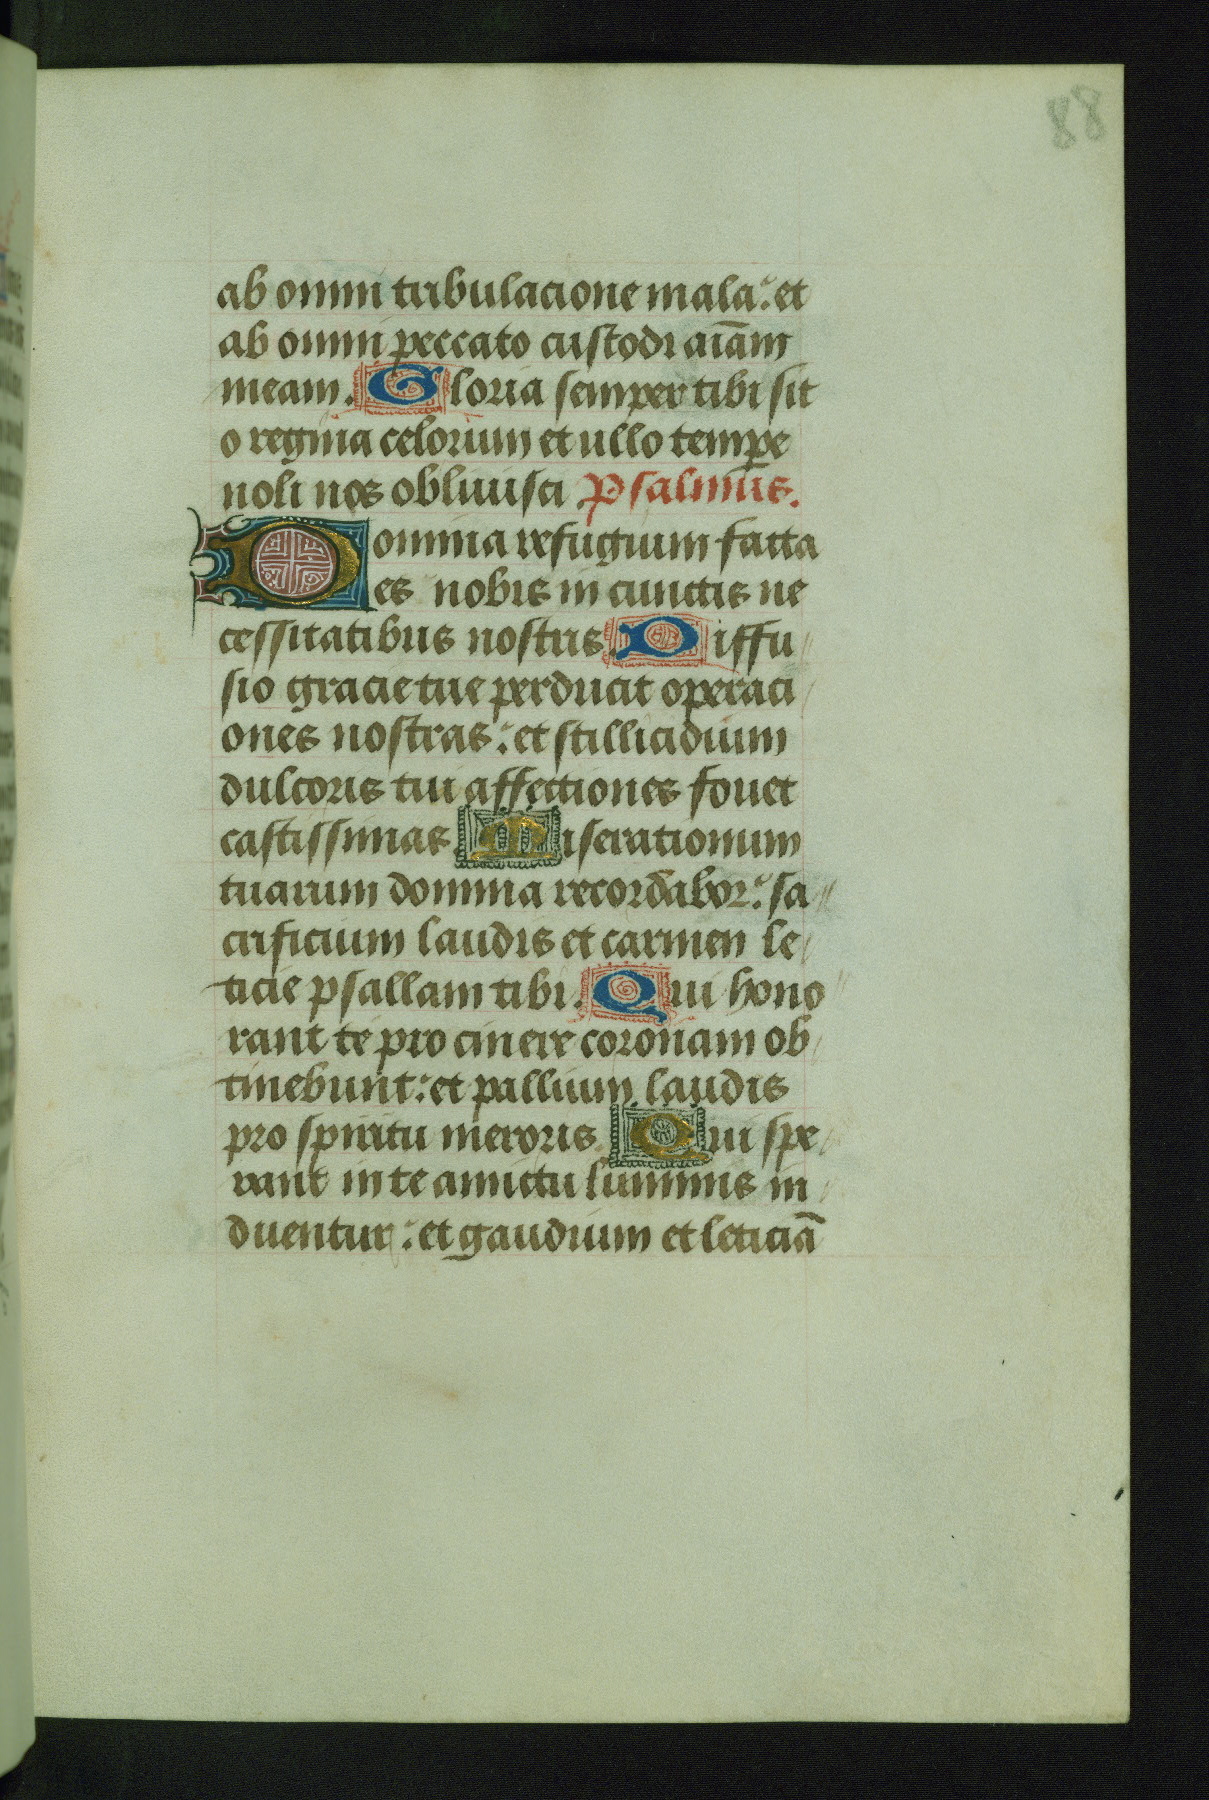 88
ab omni tribulacione mala: et
ab omni peccato custodi aīam
meam. Gloria semper tibi sit
o regina celorum et ullo tempe
noli nos obliuisci Psalmus.
Domina refugium facta
es nobis in cunctis ne
cessitatibus nostris. Diffu
sio gracie tue perducit operaci
ones nostras: et stillicidium
dulcoris tui affectiones fouet
castissimas Miserationum
tuarum domina recordabor: sa
crificium laudis et carmen le
ticie psallam tibi. Qui hono
rant te pro cinere coronam ob
tinebunt: et pallium laudis
pro spiritu meroris. Qui spe
rant in te amictu luminis in
duentur: et gaudium et leticiā